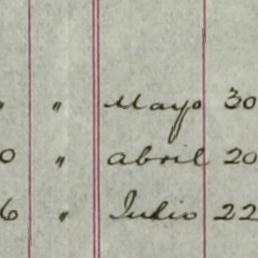 " " Mayo 30
0 " abril 20
6 " Julio 22